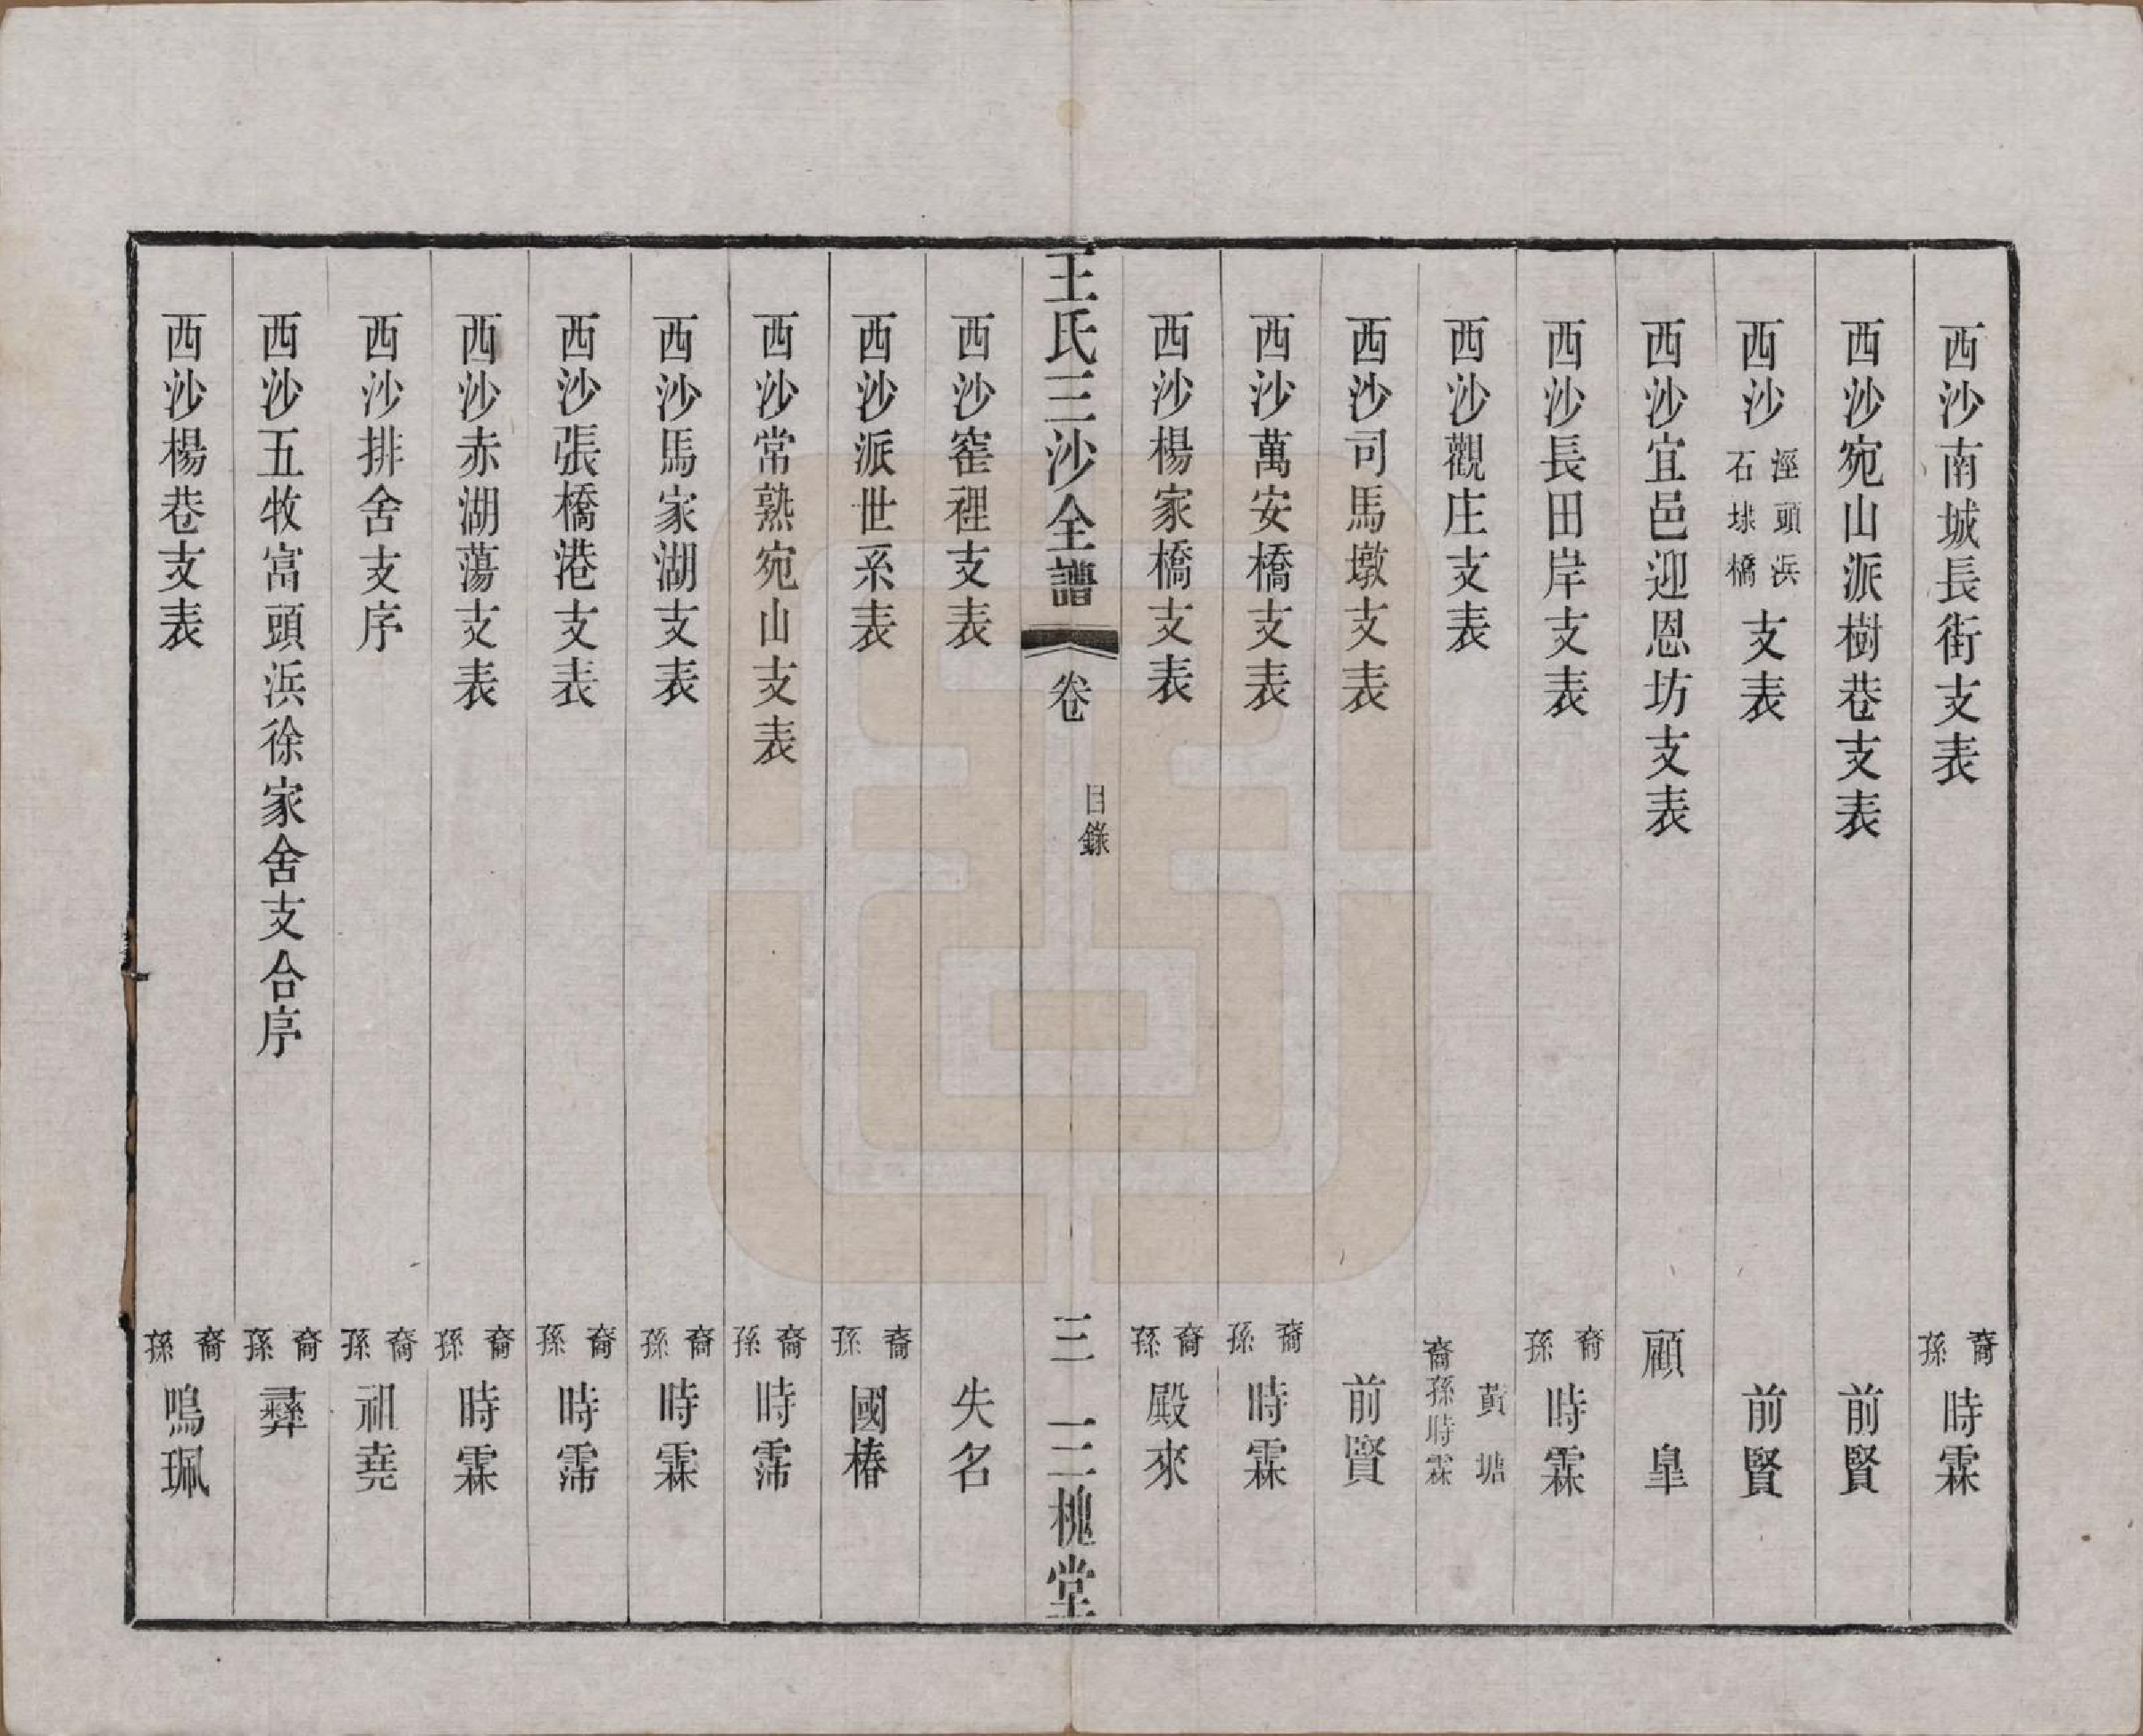 西沙南城長街支表 裔孫時霖
西沙宛山派樹巷支表 前賢
西沙涇頭浜石埭橋支表 前賢
西沙宜邑迎恩坊支表 顧臯
西沙長田岸支表 裔孫時霖
西沙觀庄支表 黃塘裔孫時霖
西沙司馬墩支表 前賢
西沙萬安橋支表 裔孫時霖
西沙楊家橋支表 裔孫殿來
王氏三沙全譜 卷 目錄 三 三槐堂
西沙窑裡支表 失名
西沙派世系表 裔孫國椿
西沙常熟宛山支表 裔孫時霈
西沙馬家湖支表 裔孫時霖
西沙張橋港支表 裔孫時霈
西沙赤湖蕩支表 裔孫時霖
西沙排舍支序 裔孫祖堯
西沙五牧富頭浜徐家舍支合序 裔孫彝
西沙楊巷支表 裔孫鳴珮